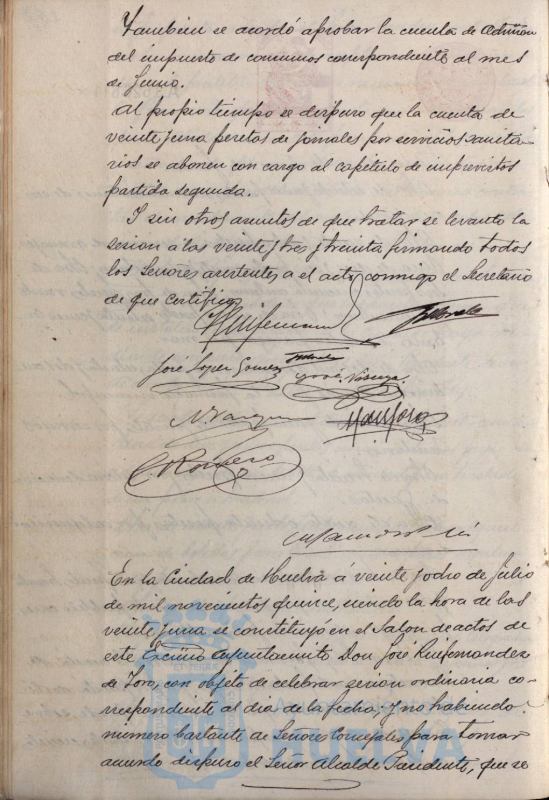 Tambien se acordó aprobar la cuenta de Admon
del impuesto de consumos correspondiente al mes
de Junio.
Al propio tiempo se dispuso que la cuenta de
veinte y una pesetas de jornales por servicios sanita
rios se abonen con cargo al capitulo de imprevistos
partida segunda.
I sin otros asuntos de que tratar se levantó la
sesion á las veinte y tres y treinta firmando todos
los Señores asistentes a el acto, conmigo el Secretario
de que certifico
José Lopez Gomez
José
N. Vazquez
C. Romero
En la Ciudad de Huelva á veinte y ocho de Julio
de mil novecientos quince, siendo la hora de las
veinte y una se constituyó en el Salon de actos de
este Excmo Ayuntamiento Don José Ruifernandez
de Toro, con objeto de celebrar sesion ordinaria co-
rrespondiente al dia de la fecha; y no habiendo
número bastante de Señores Concejales para tomar
acuerdo dispuso el Señor Alcalde Presidente, que se
HUELVA